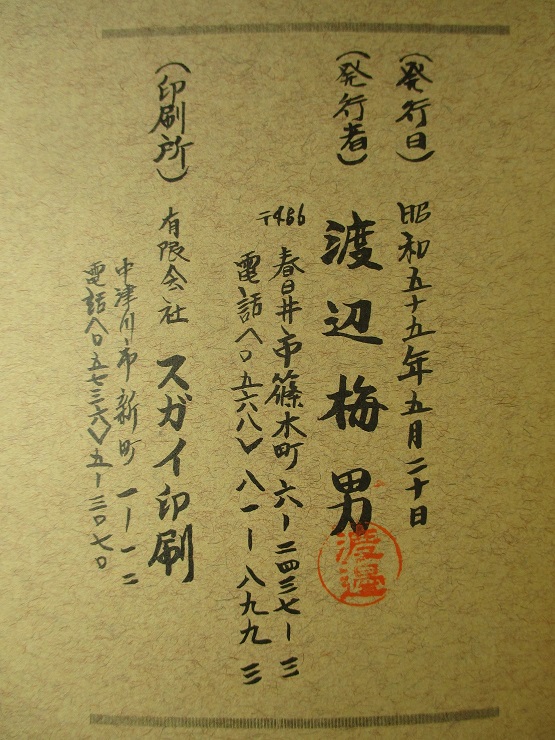 (発行日) 昭和五十九年五月二十日
(発行者) 渡辺梅男
渡邉
〒486 春日井市篠木町六ー二四三七ー三
電話(〇五六八)八一ー八九九三
(印刷所) 有限会社 スガイ印刷
中津川市新町一ー一二
電話(〇五七三六)五ー三〇七〇